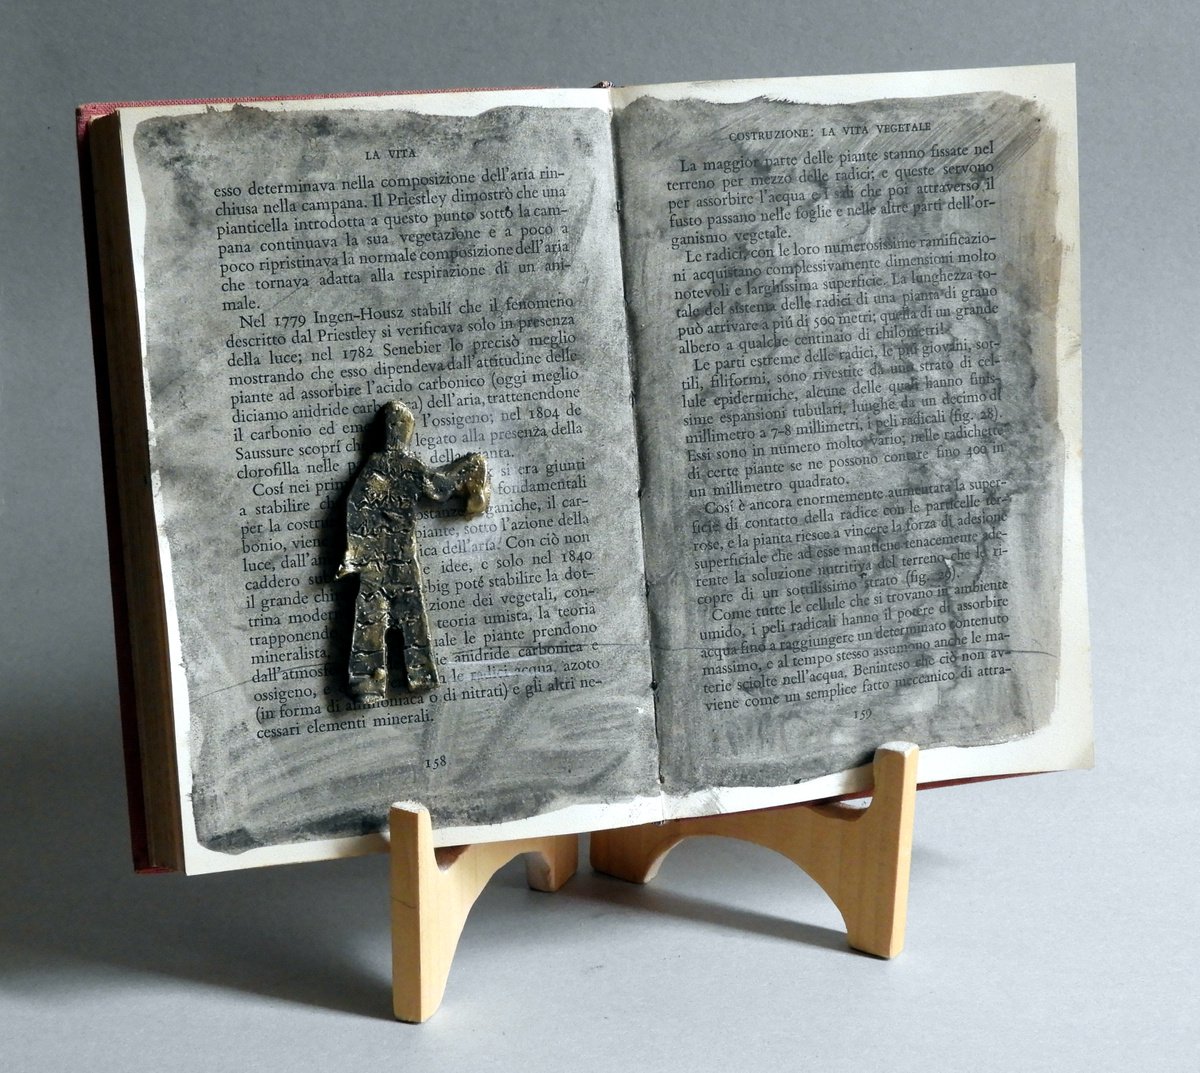 LA VITA
esso determinava nella composizione dell'aria rin-
chiusa nella campana. Il Priestley dimostrò che una
pianticella introdotta a questo punto sotto la cam-
pana continuava la sua vegetazione e a poco a
poco ripristinava la normale composizione dell'aria
che tornava adatta alla respirazione di un ani-
male.
Nel 1779 Ingen-Housz stabilí che il fenomeno
descritto dal Priestley si verificava solo in presenza
della luce; nel 1782 Senebier lo precisò meglio
mostrando che esso dipendeva dall'attitudine delle
piante ad assorbire l'acido carbonico (oggi meglio
diciamo anidride dell'aria, trattenendone
il carbonio ed l'ossigeno; nel 1804 de
Saussure scoprí legato alla presenza della
clorofilla nelle della pianta.
Cosí nei si era giunti
a stabilire fondamentali
per la il car-
bonio, piante, sotto l'azione della
luce, dell'aria. Con ciò non
caddero idee, e solo nel 1840
il grande poté stabilire la dot-
trina zione dei vegetali, con-
teoria umista, la teoria
mineralista, le piante prendono
anidride carbonica e
ossigeno, e le radici acqua, azoto
(in forma di ammoniaca o di nitrati) e gli altri ne-
cessari elementi minerali.
158
COSTRUZIONE: LA VITA VEGETALE
La maggior parte delle piante stanno fissate nel
terreno per mezzo delle radici; e queste servono
per assorbire l'acqua e i sali che poi attraverso il
fusto passano nelle foglie e nelle altre parti dell'or-
ganismo vegetale.
Le radici, con le loro numerosissime ramificazio-
ni acquistano complessivamente dimensioni molto
notevoli e larghissima superficie. La lunghezza to-
tale del sistema delle radici di una pianta di grano
può arrivare a piú di 500 metri; quella di un grande
albero a qualche centinaio di chilometri!
Le parti estreme delle radici, le piú giovani, sot-
tili, filiformi, sono rivestite da uno strato di cel-
lule epidermiche, alcune delle quali hanno finis-
sime espansioni tubulari, lunghe da un decimo di
millimetro a 7-8 millimetri, i peli radicali (fig. 28).
Essi sono in numero molto vario; nelle radichette
di certe piante se ne possono contare fino 400 in
un millimetro quadrato.
Cosí è ancora enormemente aumentata la super-
ficie di contatto della radice con le particelle ter-
rose, e la pianta riesce a vincere la forza di adesione
superficiale che ad esse mantiene tenacemente ade-
rente la soluzione nutritiva del terreno che le ri-
copre di un sottilissimo strato (fig. 29).
Come tutte le cellule che si trovano in ambiente
umido, i peli radicali hanno il potere di assorbire
acqua fino a raggiungere un determinato contenuto
massimo, e al tempo stesso assumono anche le ma-
terie sciolte nell'acqua. Beninteso che ciò non av-
viene come un semplice fatto meccanico di attra-
159